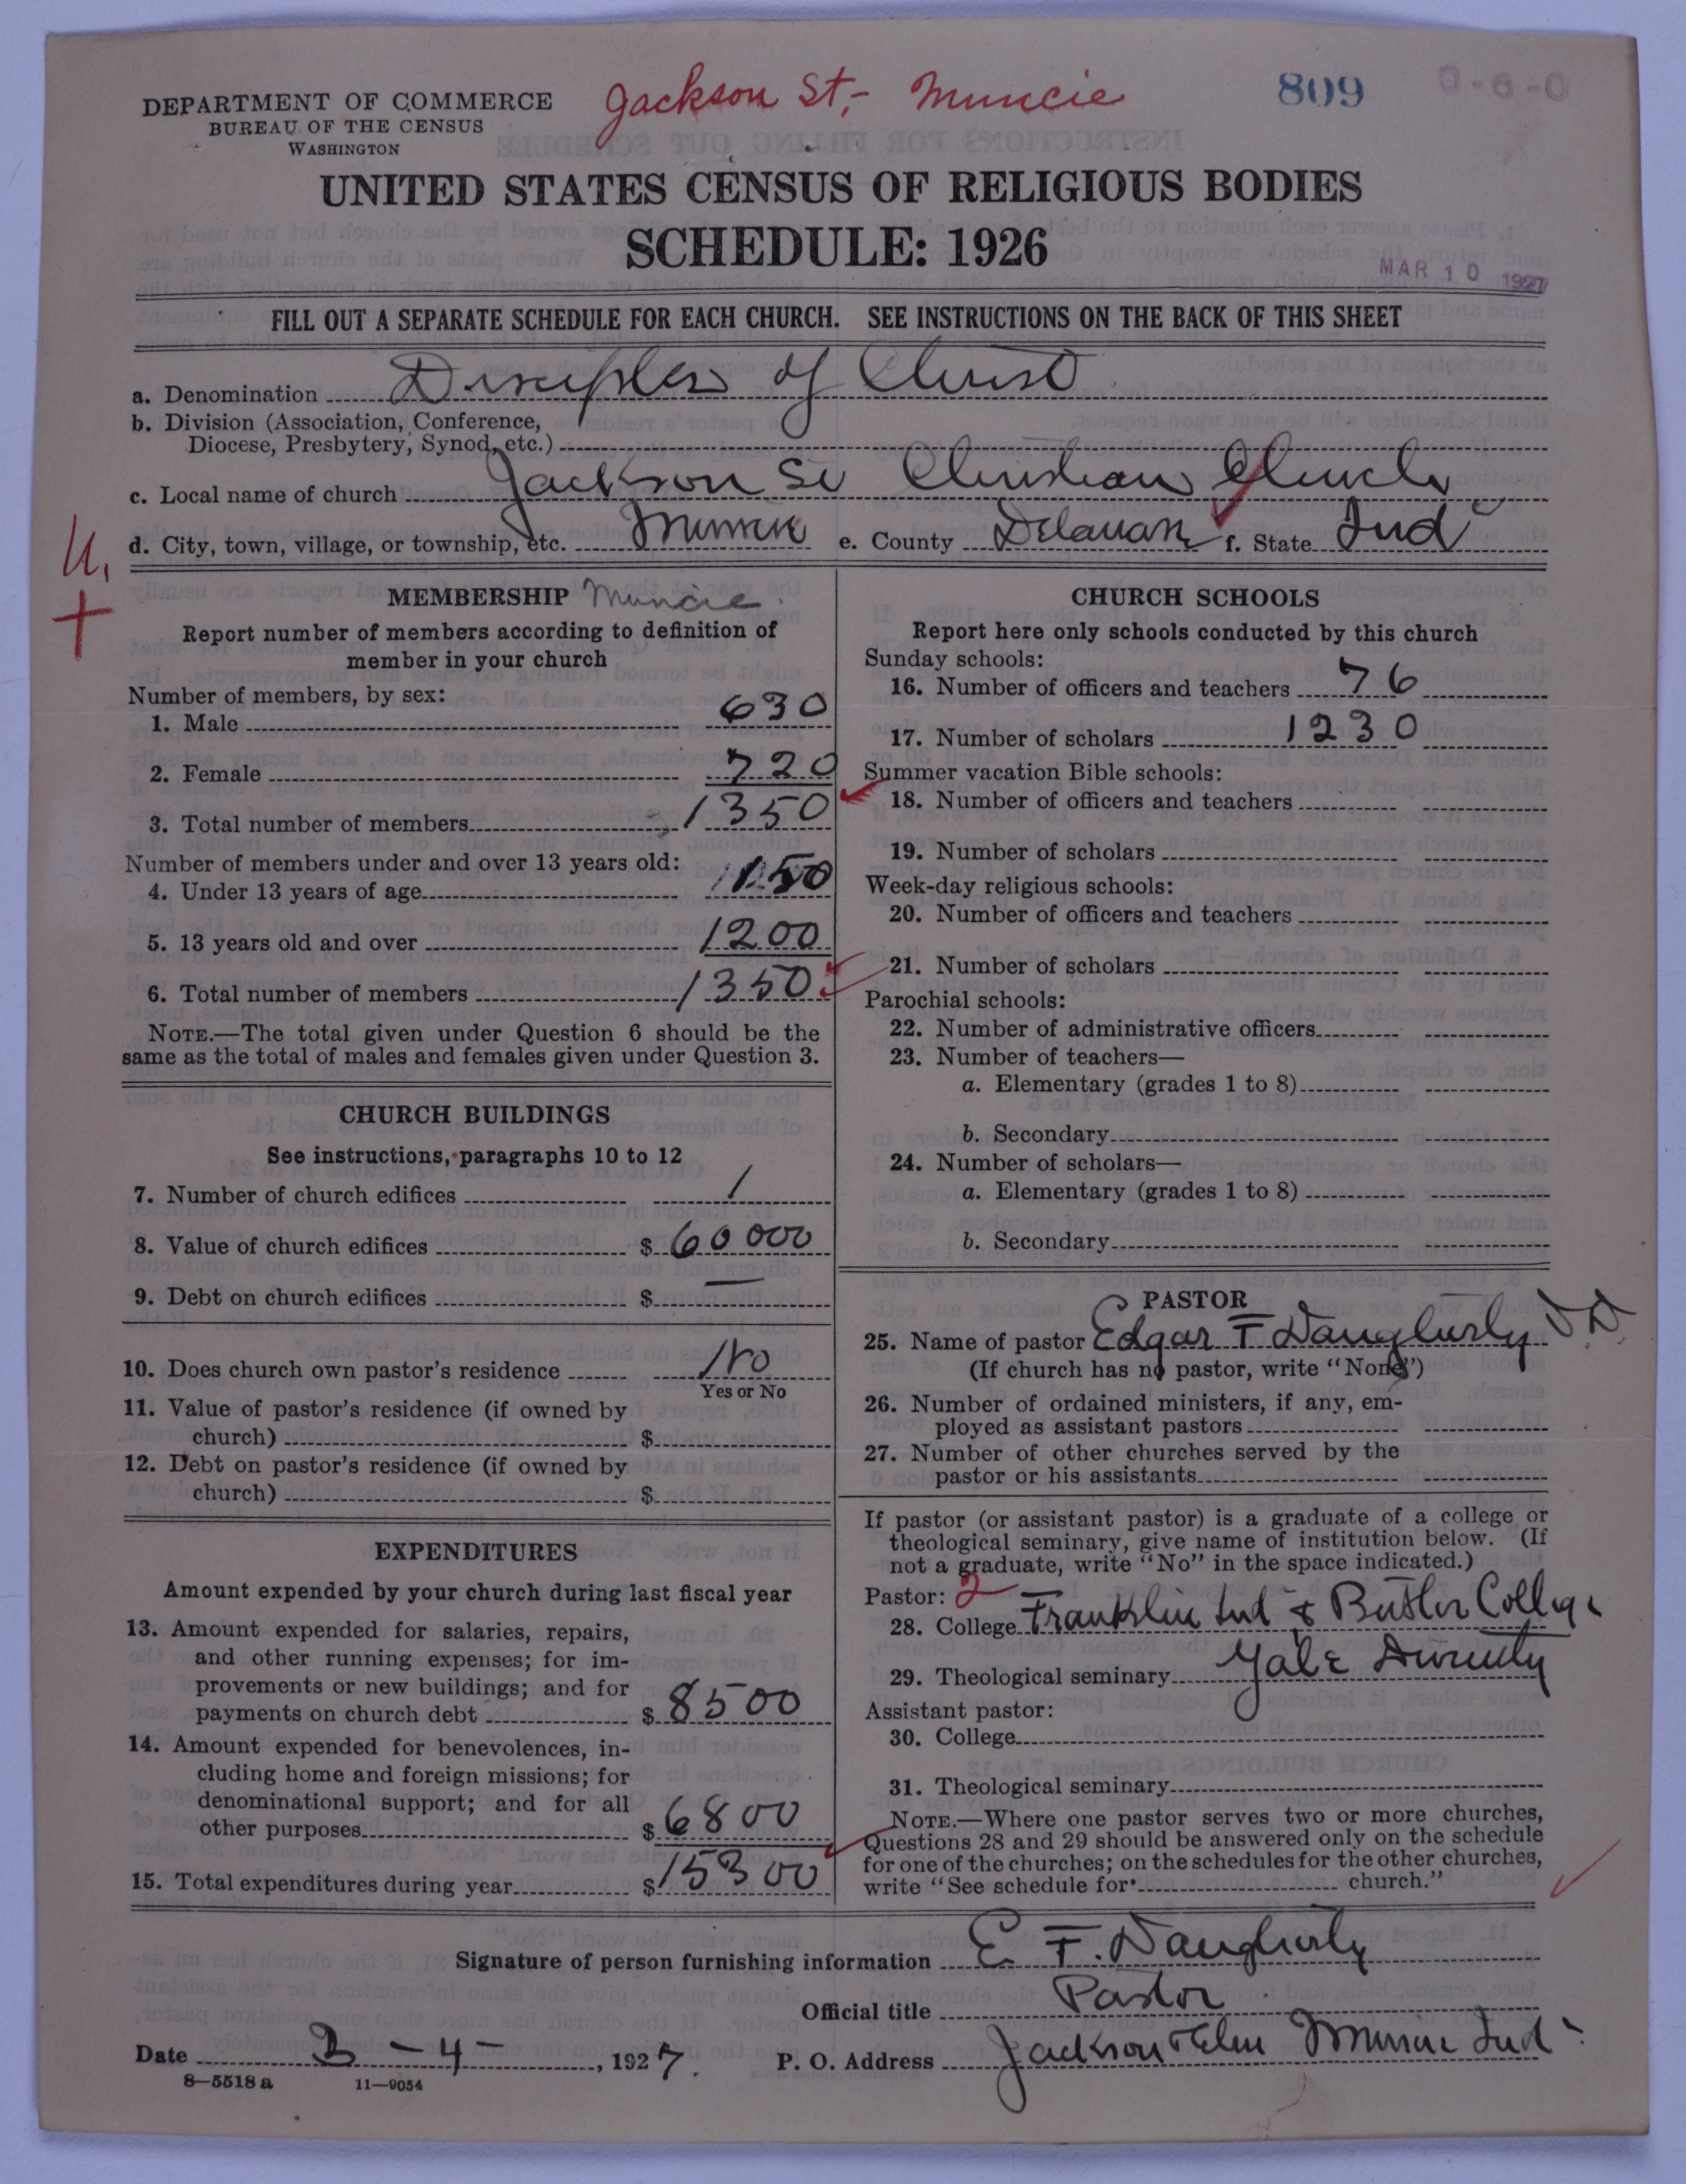 Jackson St,- Muncie
809
0-6-0
DEPARTMENT OF COMMERCE
BUREAU OF THE CENSUS
WASHINGTON
UNITED STATES CENSUS OF RELIGIOUS BODIES
SCHEDULE: 1926
MAR 10 1927
FILL OUT A SEPARATE SCHEDULE FOR EACH CHURCH. SEE INSTRUCTIONS ON THE BACK OF THIS SHEET
a. Denomination Disciples of Christ
b. Division (Association, Conference,
Diocese, Presbytery, Synod, etc.)
c. Local name of church Jackson St Christian Church
d. City, town, village, or township, etc. Muncie e. County Delaware f. State Ind
U.
+
MEMBERSHIP Muncie.
Report number of members according to definition of
member in your church
Number of members, by sex:
1. Male 630
2. Female 720
3. Total number of members 1350
Number of members under and over 13 years old:
4. Under 13 years of age 150
5. 13 years old and over 1200
6. Total number of members 1350
NOTE.—The total given under Question 6 should be the
same as the total of males and females given under Question 3.
CHURCH BUILDINGS
See instructions, paragraphs 10 to 12
7. Number of church edifices 1
8. Value of church edifices $ 60000
9. Debt on church edifices $ —
10. Does church own pastor's residence No
Yes or No
11. Value of pastor's residence (if owned by
church) $
12. Debt on pastor's residence (if owned by
church) $
EXPENDITURES
Amount expended by your church during last fiscal year
13. Amount expended for salaries, repairs,
and other running expenses; for im-
provements or new buildings; and for
payments on church debt $ 8500
14. Amount expended for benevolences, in-
cluding home and foreign missions; for
denominational support; and for all
other purposes $ 6800
15. Total expenditures during year $ 15300
CHURCH SCHOOLS
Report here only schools conducted by this church
Sunday schools:
16. Number of officers and teachers 76
17. Number of scholars 1230
Summer vacation Bible schools:
18. Number of officers and teachers
19. Number of scholars
Week-day religious schools:
20. Number of officers and teachers
21. Number of scholars
Parochial schools:
22. Number of administrative officers
23. Number of teachers—
a. Elementary (grades 1 to 8)
b. Secondary
24. Number of scholars—
a. Elementary (grades 1 to 8)
b. Secondary
PASTOR
25. Name of pastor Edgar F Daugherty DD.
(If church has no pastor, write "None")
26. Number of ordained ministers, if any, em-
ployed as assistant pastors
27. Number of other churches served by the
pastor or his assistants
If pastor (or assistant pastor) is a graduate of a college or
theological seminary, give name of institution below. (If
not a graduate, write "No" in the space indicated.)
Pastor: 2
28. College Franklin Ind & Butler College
29. Theological seminary Yale Divinity
Assistant pastor:
30. College
31. Theological seminary
NOTE.—Where one pastor serves two or more churches,
Questions 28 and 29 should be answered only on the schedule
for one of the churches; on the schedules for the other churches,
write "See schedule for church."
Signature of person furnishing information E. F. Daugherty
Official title Pastor
Date 3-4-, 1927. P. O. Address Jackson & Elm Muncie Ind
8—5518 a 11—9054